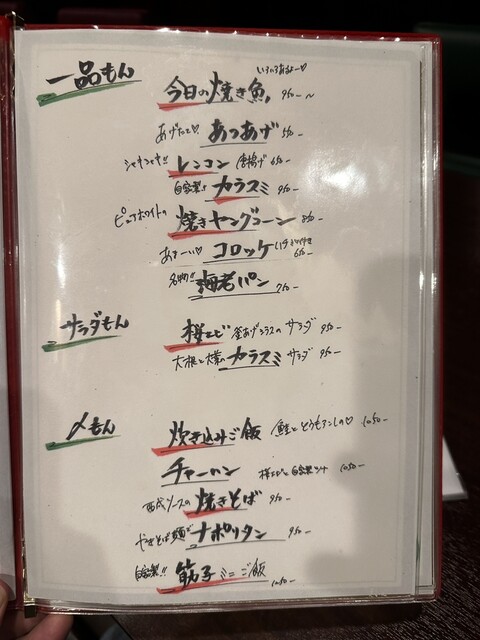 一品もん
いろいろあるよー♡
今日の焼き魚 950-～
あげたて♡ あつあげ 550-
シャキシャキ!! レンコン 唐揚げ 650-
自家製!! カラスミ 950-
ピュアホワイトの 焼きヤングコーン 850-
あまーい♡ コロッケ 650-
名物!! 海老パン 750-
サラダもん
桜エビと 釜あげシラスの サラダ 950-
大根と 水菜の カラスミ サラダ 950-
〆もん
炊き込みご飯 鮭と とうもろこしの♡ 1050-
チャーハン 桜エビと 自家製 1050-
西成ソースの 焼きそば 950-
やきそば麺で ナポリタン 950-
自家製!! 筋子ミニご飯 1050-